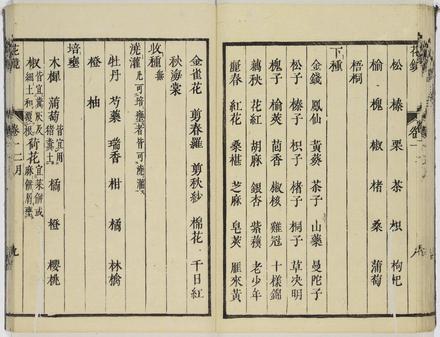 花鏡
卷一
八
松 榛 栗 茶 枳 枸杞
榆 槐 椒 楮 桑 蒲萄
梧桐
下種
金錢 鳳仙 黃葵 茶子 山藥 曼陀子
松子 榛子 枳子 楮子 桐子 草決明
槐子 榆莢 茴香 椒核 雞冠 十樣錦
藕秧 花紅 胡麻 銀杏 紫蘓 老少年
麗春 紅花 桑椹 芝麻 皂莢 雁來黃
金雀花 剪春羅 剪秋紗 棉花 千日紅
秋海棠
收種 無
澆灌 凡可培壅者皆可澆灌
牡丹 芍藥 瑞香 柑 橘 林檎
橙 柚
培壅
木樨 蒲萄 皆宜用猪糞土 橘 橙 櫻桃
椒 皆宜糞灰及細土和覆根 荷花 宜菜餅或麻餅屑壅
花鏡
卷一 二月
九